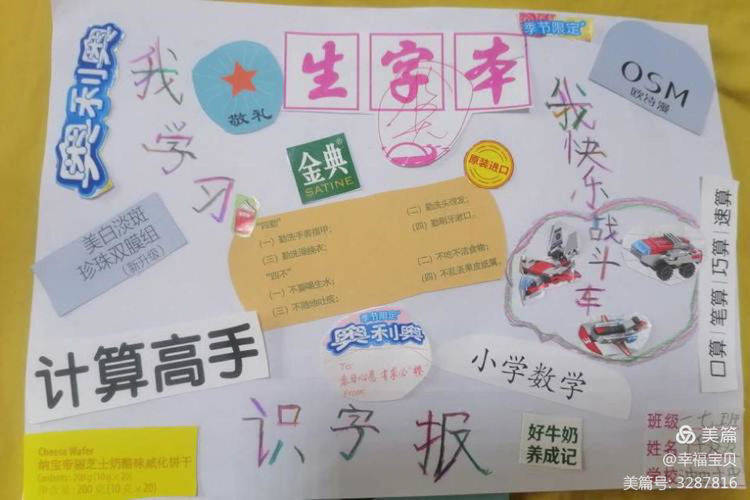 季节限定
奥利奥
我学习
敬礼
生字本
OSM
欧诗漫
我快乐
战斗车
金典®
SATINE
原装进口
"四勤"
(一) 勤洗手剪指甲;
(二) 勤洗头理发;
(三) 勤洗澡换衣;
(四) 勤刷牙漱口。
"四不"
(一) 不要喝生水;
(二) 不吃不洁食物;
(三) 不随地吐痰;
(四) 不乱丢果皮纸屑。
美白淡斑
珍珠双膜组
(新升级)
口算|笔算|巧算|速算
季节限定
奥利奥
To:
From:
计算高手
小学数学
识字报
好牛奶
养成记
Cheese Wafer
纳宝帝丽芝士奶酪味威化饼干
200克 (10克×20)
班级
姓名
学校
美篇
@幸福宝贝
美篇号: 3287816